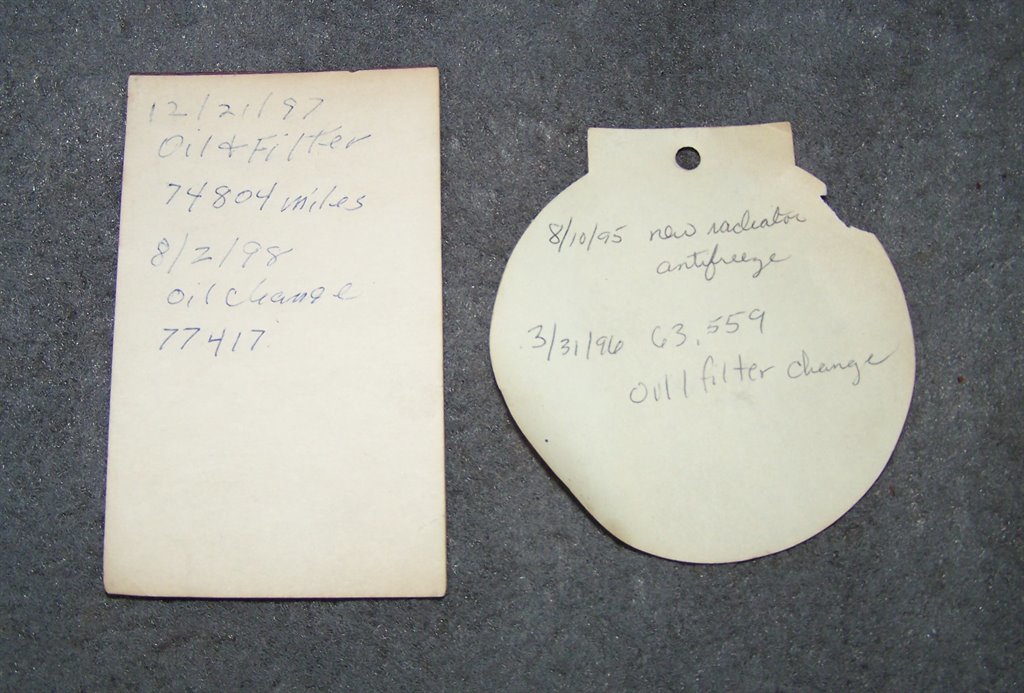 12/21/97
Oil & Filter
74804 miles
8/2/98
oil change
77417
8/10/95 new radiator
antifreeze
3/31/96 63,559
Oil/filter change